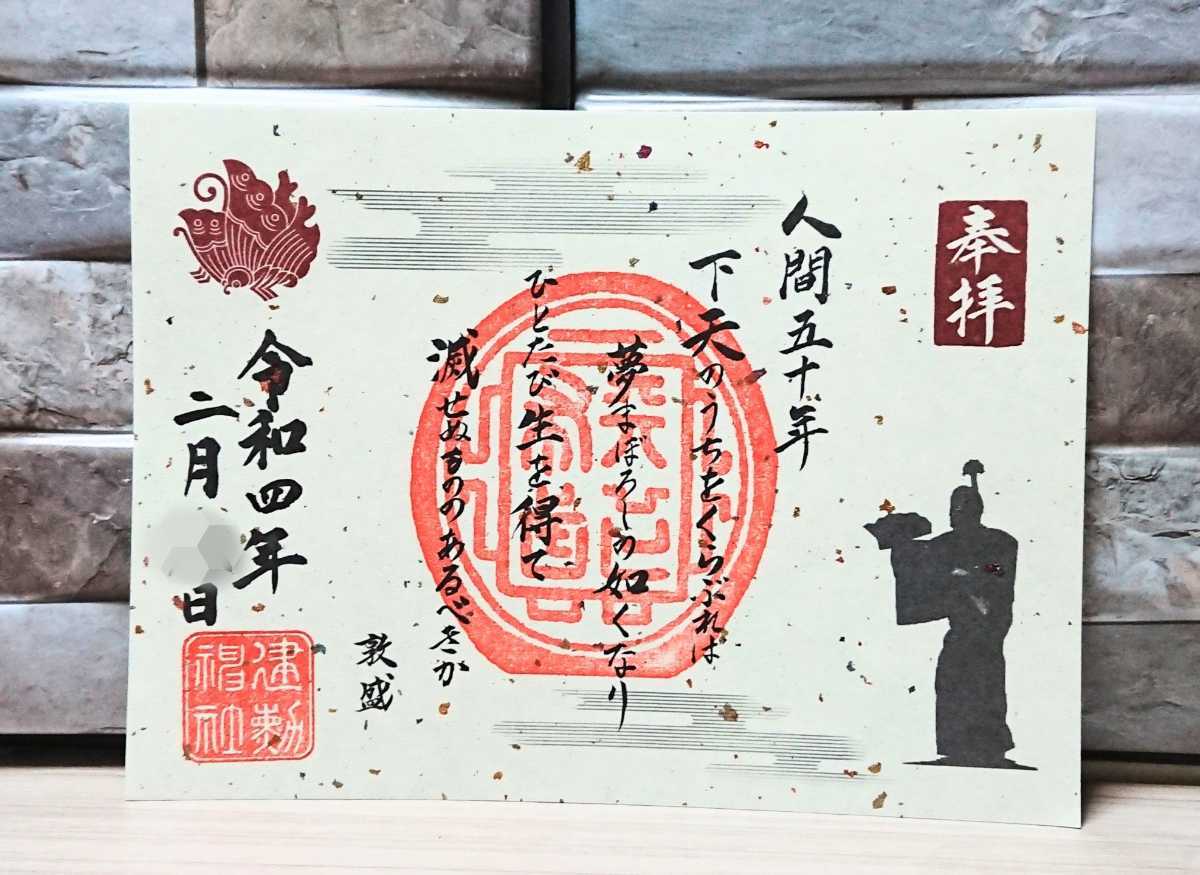 奉拝
人間五十年
下天のうちをくらぶれは
夢まぼろしの如くなり
ひとたび生を得て
滅せぬもののあるべきか
敦盛
令和四年
二月 日
建勲
神社